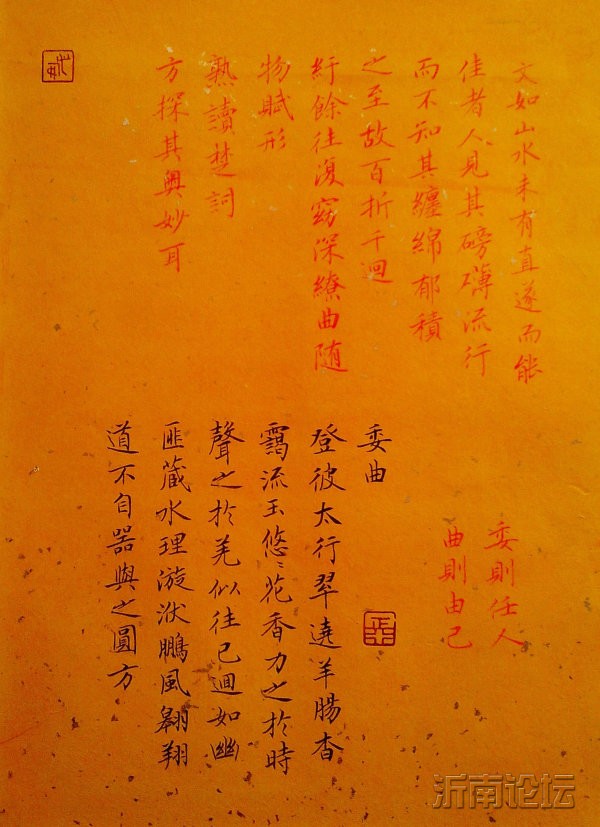 文如山水未有直遂而能
佳者人見其磅礴流行
而不知其纏綿郁積
之至故百折千迴
紆餘往復窈深繚曲随
物賦形
熟讀楚詞
方探其奧妙耳
委則任人
曲則由己
委曲
登彼太行翠遶羊腸杳
靄流玉悠〻花香力之於時
聲之於羌似往已迴如幽
匪藏水理漩洑鵬風翱翔
道不自器與之圓方
沂南论坛